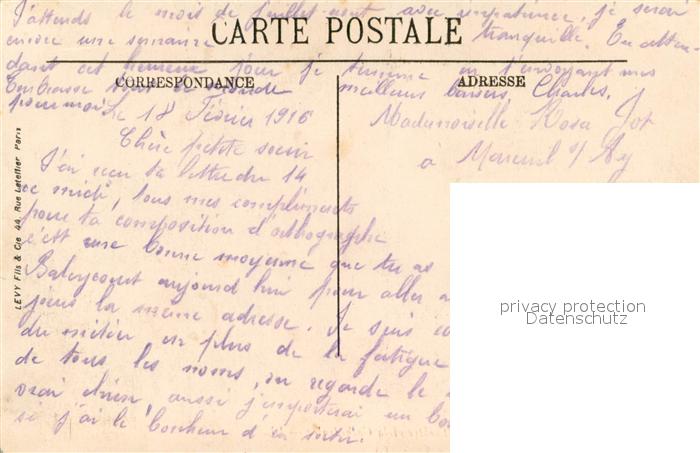 J'attends le mois de juillet-août avec impatience, je serai
encore une semaine tranquille. En atten-
dant cet heureux jour je termine en t'envoyant mes
Embrasse tout le monde meilleurs baisers Charles.
pour moi
CARTE POSTALE
CORRESPONDANCE
ADRESSE
Le 18 Février 1916
Mademoiselle Rosa Jot
a Mareuil s/ Ay
Chère petite soeur
J'ai reçu ta lettre du 14
ce midi, tous mes compliments
pour ta composition d'orthographe
c'est une bonne moyenne que tu as
Baleycourt aujourd'hui pour aller
jours la même adresse. Je suis
du métier en plus de la fatigue
de tous les noms, on regarde le
vrai chien, aussi j'emporterai un
si j'ai le bonheur d'en sortir.
LEVY Fils & Cie 44, Rue Letellier Paris
privacy protection
Datenschutz